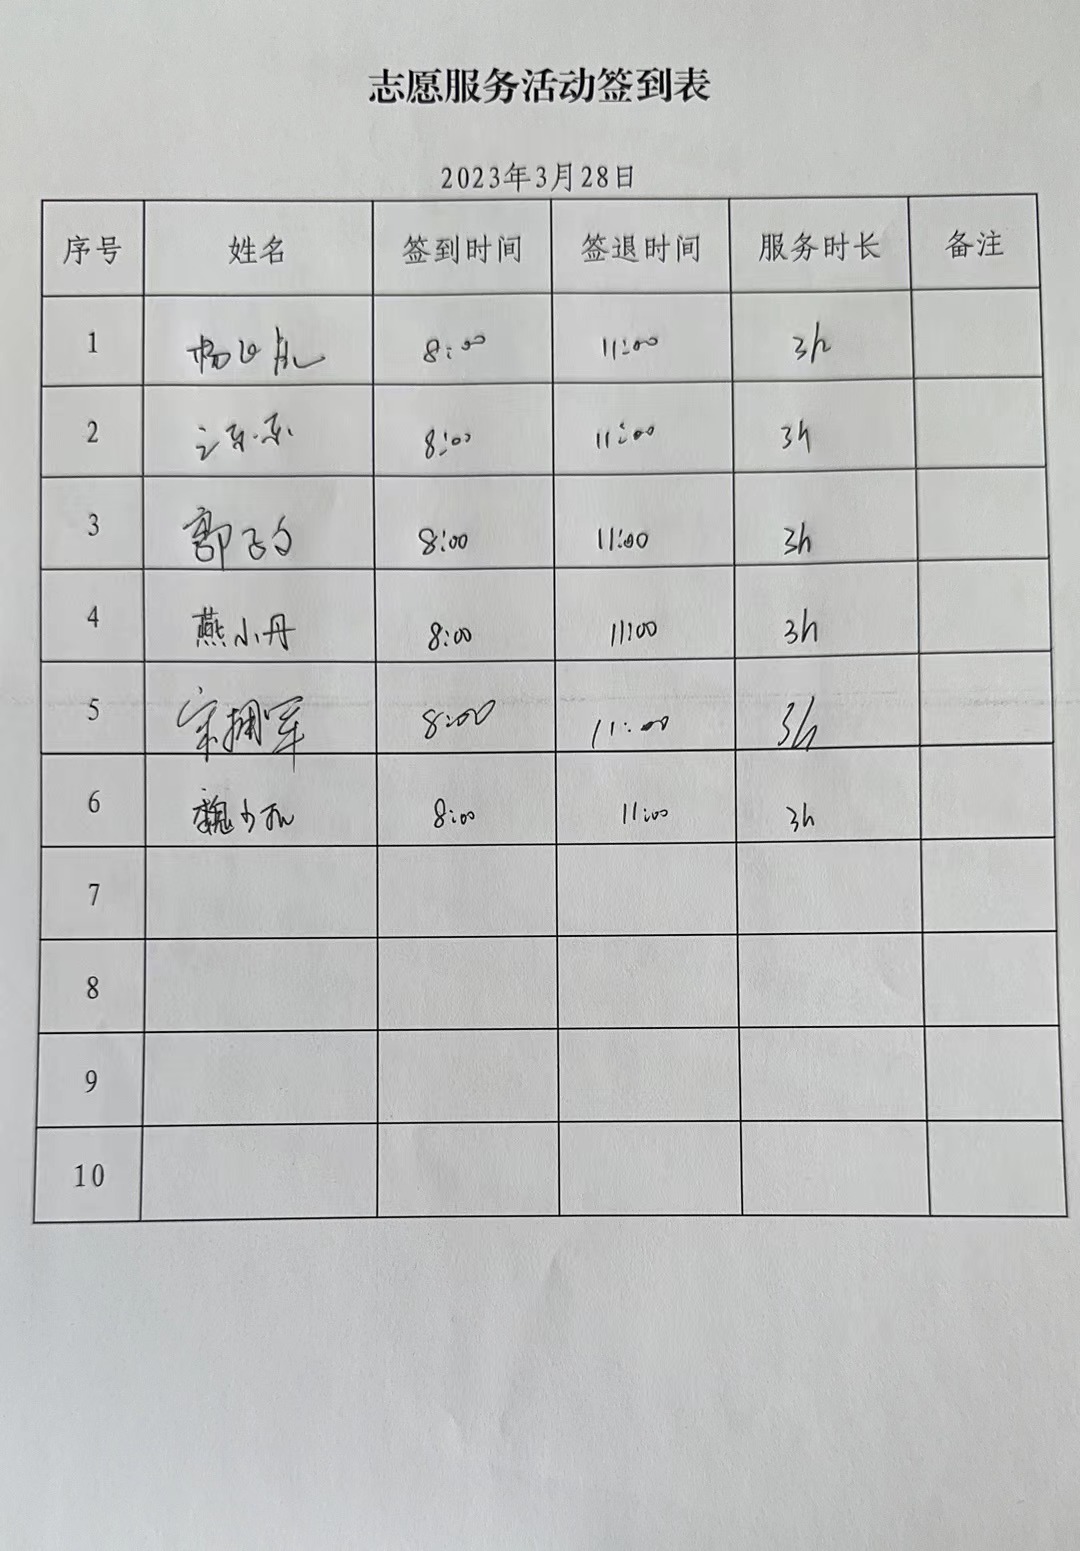 志愿服务活动签到表
2023年3月28日
序号 姓名 签到时间 签退时间 服务时长 备注
1 杨 8:00 11:00 3h
2 8:00 11:00 3h
3 郭子 8:00 11:00 3h
4 燕小丹 8:00 11:00 3h
5 宋拥军 8:00 11:00 3h
6 魏少 8:00 11:00 3h
7
8
9
10